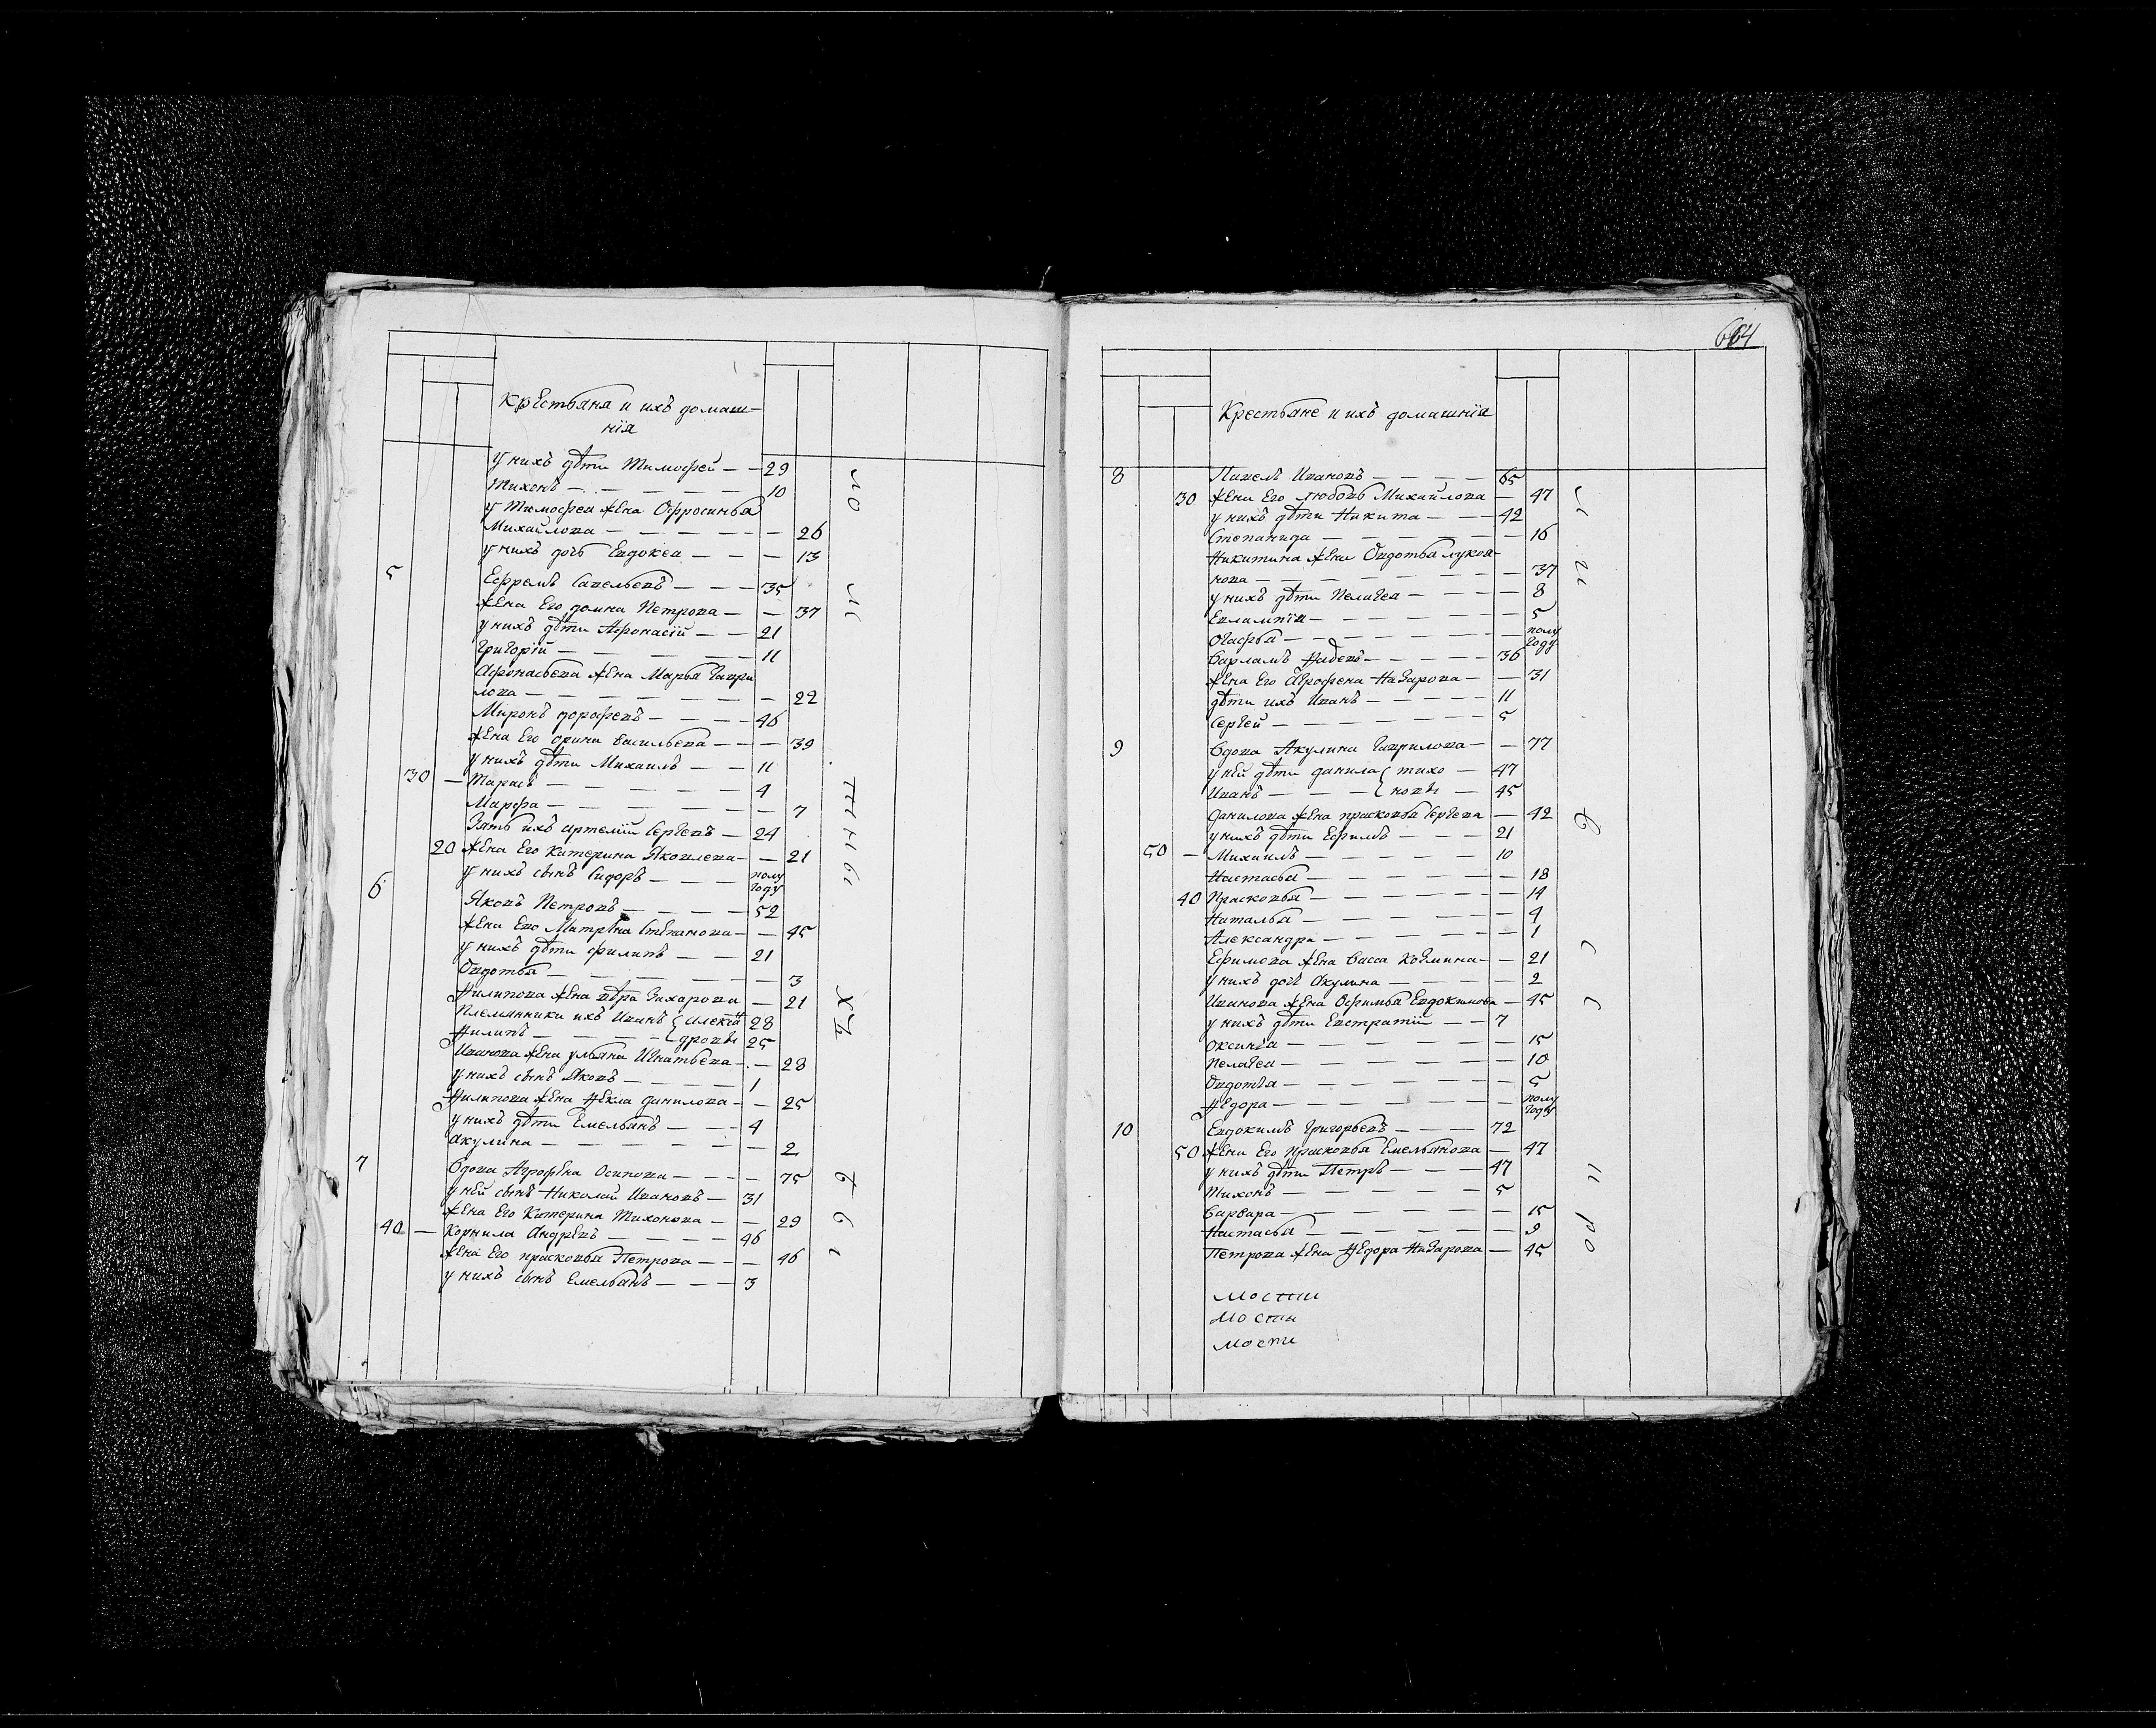 Крестьяня и ихъ домаш-
нія
у нихъ дѣти Тимофей — — 29
Тихонъ — — — — — — 10
у Тимофея жена Офросинья
Михайлова — — — — — — 26
у нихъ дочь Евдокея — — — 13
5 Ефремъ Савельевъ — — — 35
жена Его домна Петрова — — 37
у нихъ дѣти Афонасій — — 21
Григорій — — — — — 11
Афонасьева жена Марья Гаври
лова — — — — — — 22
Миронъ дорофеевъ — — — — 46
жена Его орина васильева — — — 39
у нихъ дѣти Михаилъ — — 11
30 — Тарасъ — — — — — — 4
Марфа — — — — — — 7
Зять ихъ артемій Сергеевъ — 24
20 жена Его катерина Яковлева — — 21
у нихъ сынъ Сидоръ — — — полу
году
6 Яковъ Петровъ — — — — 52
жена Его Матрѣна Степанова — — 45
у нихъ дѣти филипъ — — 21
Овдотья — — — — — — 3
Филипова жена вѣра Захарова — 21
Племянники ихъ Иванъ { алексан 28
Филипъ — — — — { дровы 25
Иванова жена ульяна Игнатьева — — 28
у нихъ сынъ Яковъ — — — — 1
Филипова жена Фекла данилова — — 25
у нихъ дѣти Емельянъ — — — 4
акулина — — — — — — 2
7 вдова Агрофѣна Осипова — — — — 75
у ней сынъ Николай Ивановъ — 31
жена Его Катерина Тихонова — — 29
40 — Корнила Андрѣевъ — — — — 46
жена Его прасковья Петрова — — — 46
у нихъ сынъ Емельянъ — — — 3
664
Крестьяне и ихъ домашнія
8 Павелъ Ивановъ — — — — 65
30 жена Его любовь Михайлова — 47
у нихъ дѣти Никита — — — 42
Степанида — — — — — — 16
Никитина жена Овдотья лукоя-
нова — — — — — — — 37
у нихъ дѣти Пелагея — — — — 8
Евлампія — — — — — — 5
огафья — — — — — — полу
году
варламъ Фадеевъ — — — — — 36
жена Его Агрофена Назарова — — 31
дѣти ихъ Иванъ — — — — 11
Сергей — — — — — — 5
9 вдова Акулина Гаврилова — — 77
у ней дѣти данила { тихо — 47
Иванъ — — — { новы — 45
данилова жена прасковья Сергеева — 42
у нихъ дѣти Ефимъ — — — 21
50 — Михаилъ — — — — — 10
Настасья — — — — — — 18
40 Прасковья — — — — — — 14
Наталья — — — — — — 4
Александра — — — — — — 1
Ефимова жена васса козмина — — 21
у нихъ дочь Акулина — — — — 2
Иванова жена Офимья Евдокимова — 45
у нихъ дѣти Евстратій — — 7
оксинья — — — — — — 15
пелагея — — — — — — 10
Овдотья — — — — — — 5
Федора — — — — — — полу
году
10 Евдокимъ Григорьевъ — — — — 72
50 жена Его прасковья Емельянова — 47
у нихъ дѣти Петръ — — — 47
Тихонъ — — — — — — 5
варвара — — — — — — 15
Настасья — — — — — — 9
Петрова жена Федора Назарова — 45
мости
мости
мости